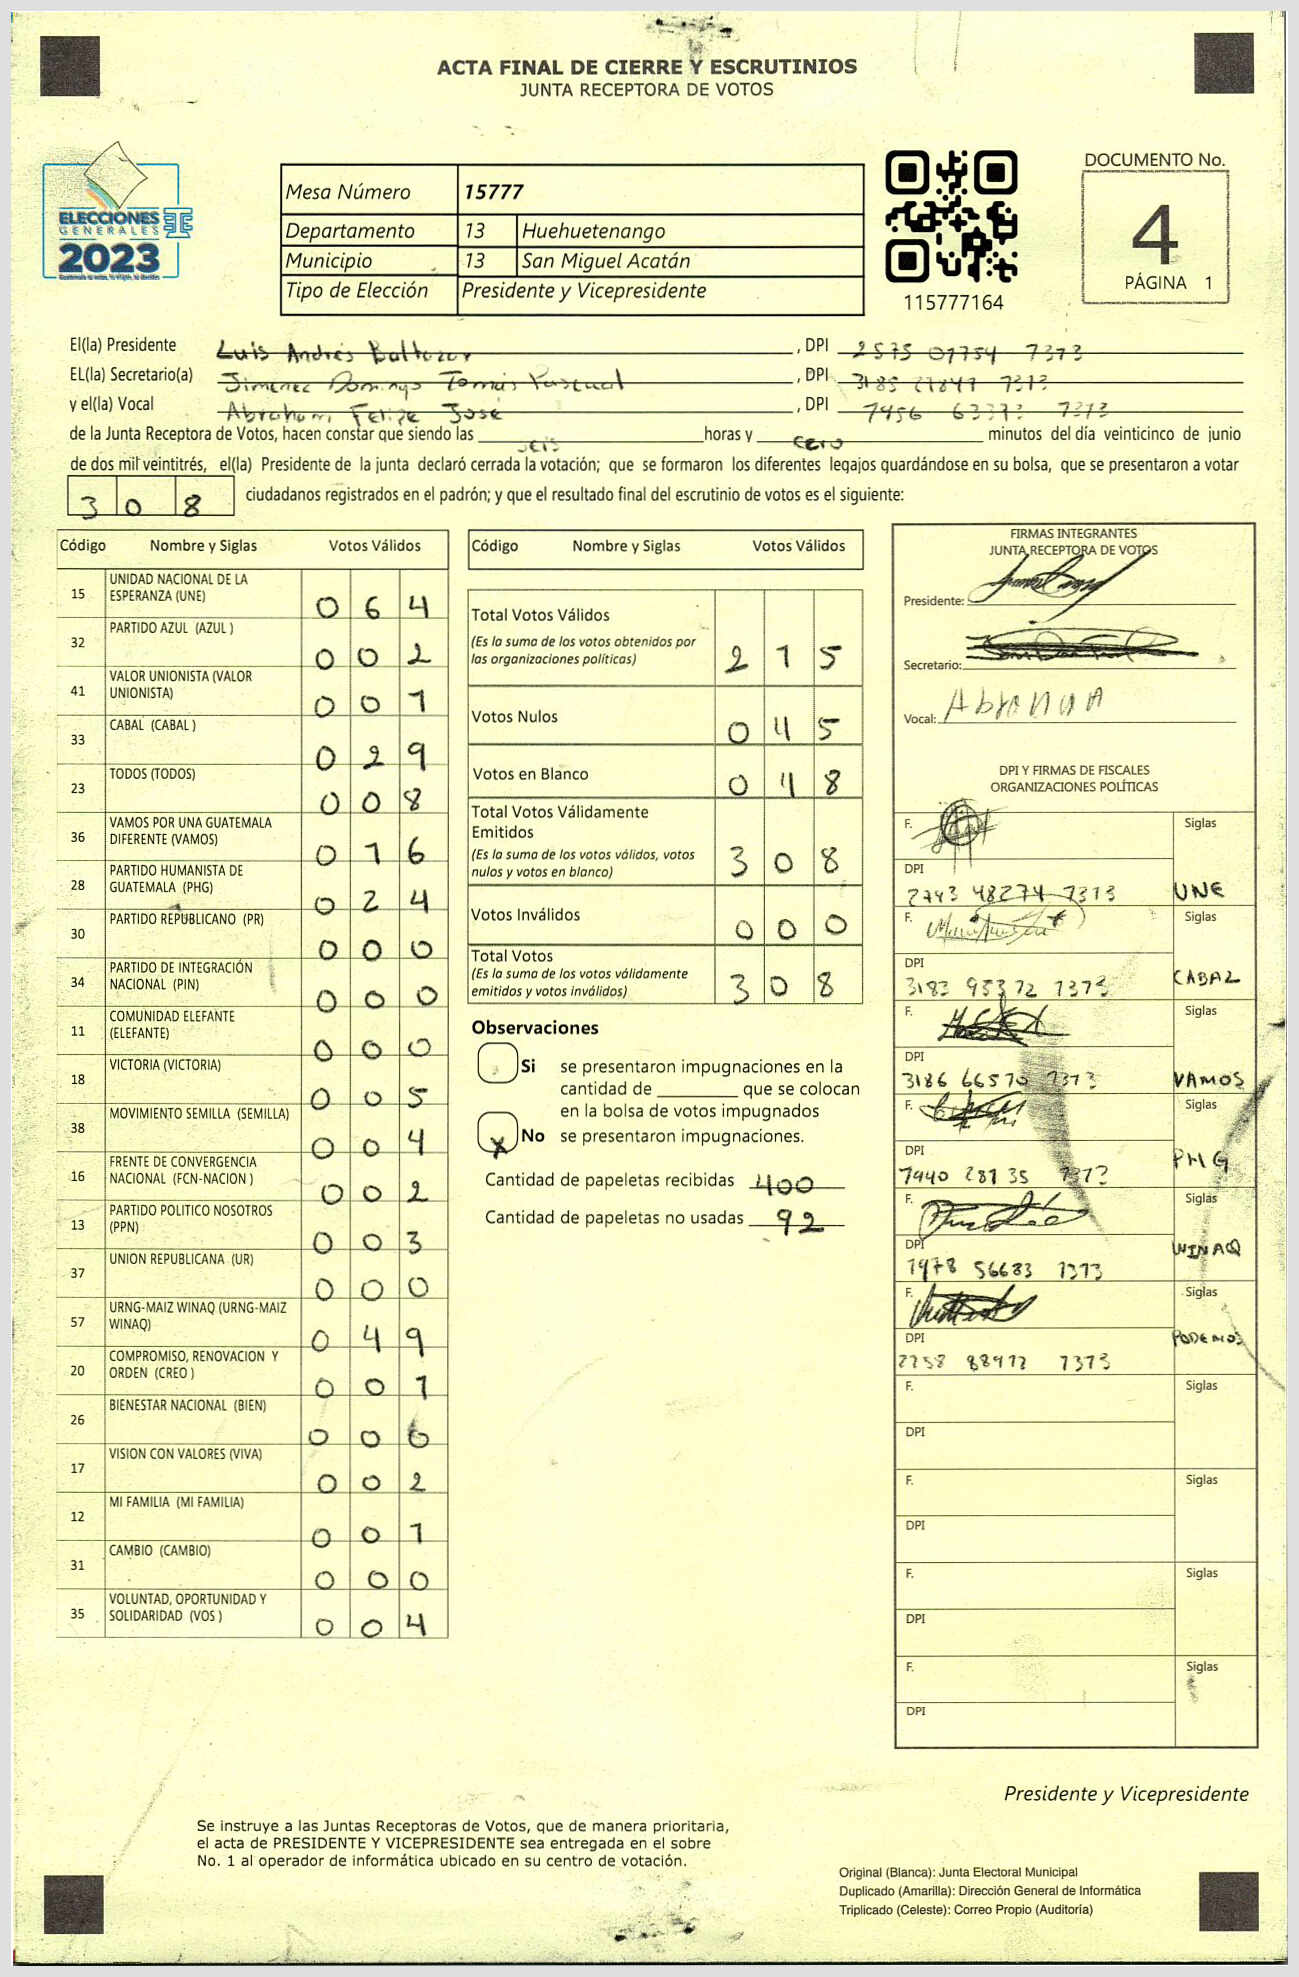 ACTA FINAL DE CIERRE Y ESCRUTINIOS
JUNTA RECEPTORA DE VOTOS
ELECCIONES
GENERALES
2023
Mesa Número 15777
Departamento 13 Huehuetenango
Municipio 13 San Miguel Acatán
Tipo de Elección Presidente y Vicepresidente
115777164
DOCUMENTO No.
4
PÁGINA 1
El(la) Presidente Luis Andrés Baltazar, DPI 2575 01754 1313
EL(la) Secretario(a) Jimenez Domingo Tomás Pascual, DPI 3185 21841 1313
y el(la) Vocal Abraham Felipe José, DPI 1956 63373 1313
de la Junta Receptora de Votos, hacen constar que siendo las seis horas y cero minutos del día veinticinco de junio
de dos mil veintitrés, el(la) Presidente de la junta declaró cerrada la votación; que se formaron los diferentes legajos guardándose en su bolsa, que se presentaron a votar
308 ciudadanos registrados en el padrón; y que el resultado final del escrutinio de votos es el siguiente:
Código Nombre y Siglas Votos Válidos
15 UNIDAD NACIONAL DE LA ESPERANZA (UNE) 0 6 4
32 PARTIDO AZUL (AZUL ) 0 0 2
41 VALOR UNIONISTA (VALOR UNIONISTA) 0 0 1
33 CABAL (CABAL ) 0 2 9
23 TODOS (TODOS) 0 0 8
36 VAMOS POR UNA GUATEMALA DIFERENTE (VAMOS) 0 1 6
28 PARTIDO HUMANISTA DE GUATEMALA (PHG) 0 2 4
30 PARTIDO REPUBLICANO (PR) 0 0 0
34 PARTIDO DE INTEGRACIÓN NACIONAL (PIN) 0 0 0
11 COMUNIDAD ELEFANTE (ELEFANTE) 0 0 0
18 VICTORIA (VICTORIA) 0 0 5
38 MOVIMIENTO SEMILLA (SEMILLA) 0 0 4
16 FRENTE DE CONVERGENCIA NACIONAL (FCN-NACION ) 0 0 2
13 PARTIDO POLITICO NOSOTROS (PPN) 0 0 3
37 UNION REPUBLICANA (UR) 0 0 0
57 URNG-MAIZ WINAQ (URNG-MAIZ WINAQ) 0 4 9
20 COMPROMISO, RENOVACION Y ORDEN (CREO ) 0 0 1
26 BIENESTAR NACIONAL (BIEN) 0 0
17 VISION CON VALORES (VIVA) 0 0 2
12 MI FAMILIA (MI FAMILIA) 0 0 1
31 CAMBIO (CAMBIO) 0 0 0
35 VOLUNTAD, OPORTUNIDAD Y SOLIDARIDAD (VOS ) 0 0 4
Código Nombre y Siglas Votos Válidos
Total Votos Válidos 2 1 5
(Es la suma de los votos obtenidos por
las organizaciones políticas)
Votos Nulos 0 4 5
Votos en Blanco 0 4 8
Total Votos Válidamente
Emitidos 3 0 8
(Es la suma de los votos válidos, votos
nulos y votos en blanco)
Votos Inválidos 0 0 0
Total Votos 3 0 8
(Es la suma de los votos válidamente
emitidos y votos inválidos)
Observaciones
Si se presentaron impugnaciones en la
cantidad de ________ que se colocan
en la bolsa de votos impugnados
X No se presentaron impugnaciones.
Cantidad de papeletas recibidas 400
Cantidad de papeletas no usadas 92
FIRMAS INTEGRANTES
JUNTA RECEPTORA DE VOTOS
Presidente:
Secretario:
Vocal:
DPI Y FIRMAS DE FISCALES
ORGANIZACIONES POLÍTICAS
F. Siglas
DPI
2743 48274 1313 UNE
F. Siglas
DPI
3183 95372 1313 CABAL
F. Siglas
DPI
3186 66570 1313 VAMOS
F. Siglas
DPI
1940 28135 1313 PHG
F. Siglas
DPI
1978 56683 1313 WINAQ
F. Siglas
DPI
2258 88912 1313 PODEMOS
F. Siglas
DPI
F. Siglas
DPI
F. Siglas
DPI
F. Siglas
DPI
Presidente y Vicepresidente
Se instruye a las Juntas Receptoras de Votos, que de manera prioritaria,
el acta de PRESIDENTE Y VICEPRESIDENTE sea entregada en el sobre
No. 1 al operador de informática ubicado en su centro de votación.
Original (Blanca): Junta Electoral Municipal
Duplicado (Amarilla): Dirección General de Informática
Triplicado (Celeste): Correo Propio (Auditoría)